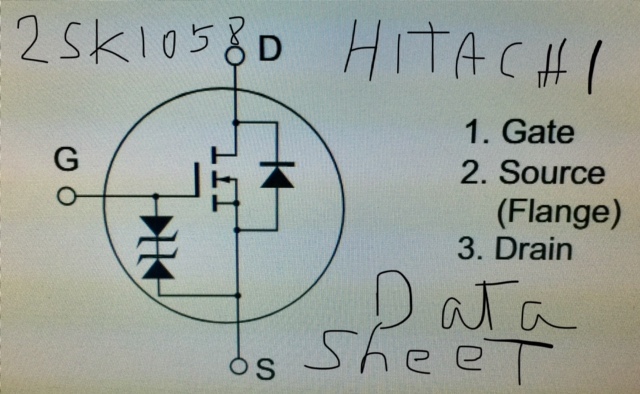 2SK1058 HITACHI
D
G
1. Gate
2. Source
(Flange)
3. Drain
S
Data
SheeT